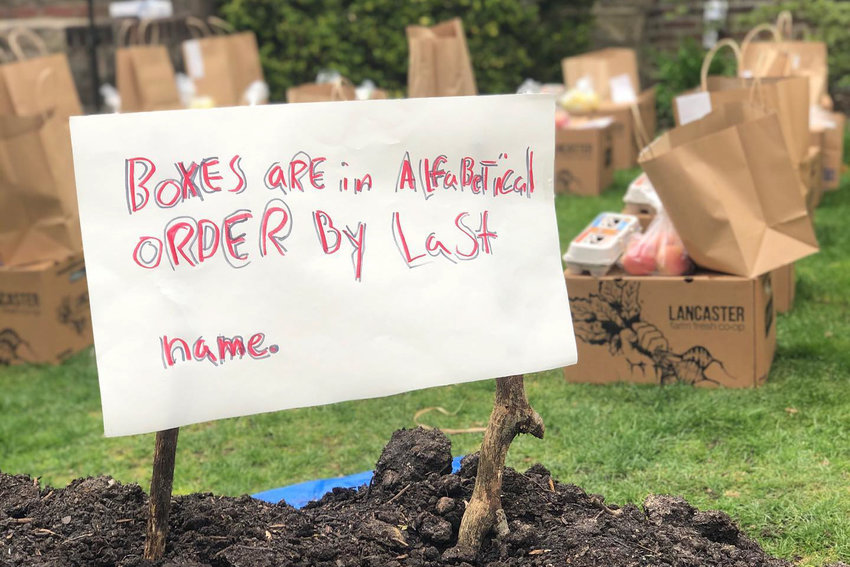 BOXES ARE in ALFaBETical
ORDER By LaSt
name.
LANCASTER
farm fresh co-op
LANCASTER
farm fresh co-op